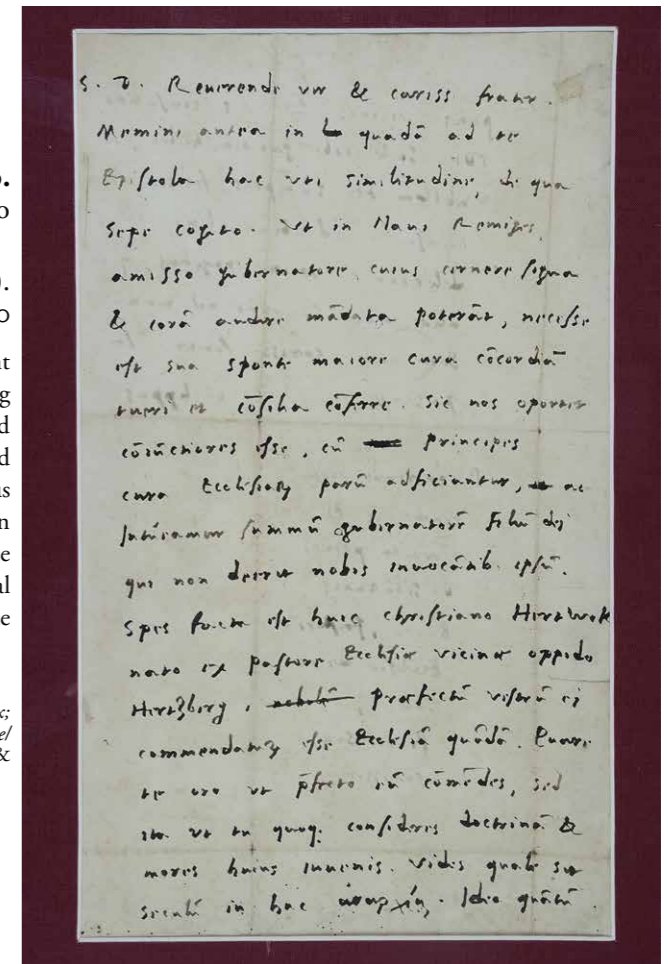 S. D. Reuerende vir & cariss frater.
Memini antea in quadā ad te
Epistola hac uti similitudine, de qua
sepe cogito. Vt in Naui Remiges,
amisso gubernatore, cuius cernere signa
& corā audire mādata poterāt, necesse
est sua sponte maiore cura cōcordiā
tueri et cōsilia cōferre. Sic nos oportet
cōiūctiores esse, cū principes
cura Ecclesiarū parū adficiantur, ac
intueamur summū gubernatorē filiū dei
qui non deerit nobis inuocātib. ipsū.
Spes facta est huic christiano
nato ex pastore Ecclesiæ vicinæ oppido
Hertzberg, præfectū vestrū ei
esse Ecclesiā quādā. Quare
te oro vt eū cōmēdes, sed
ita vt tu quoq. consideres doctrinā &
mores huius iuuenis. Vides quale sit
seculū in hac ἀναρχίᾳ. Ideo quātū
.
o
).
o
nt
g
d
d
us
n
e
al
e
c;
e/
&